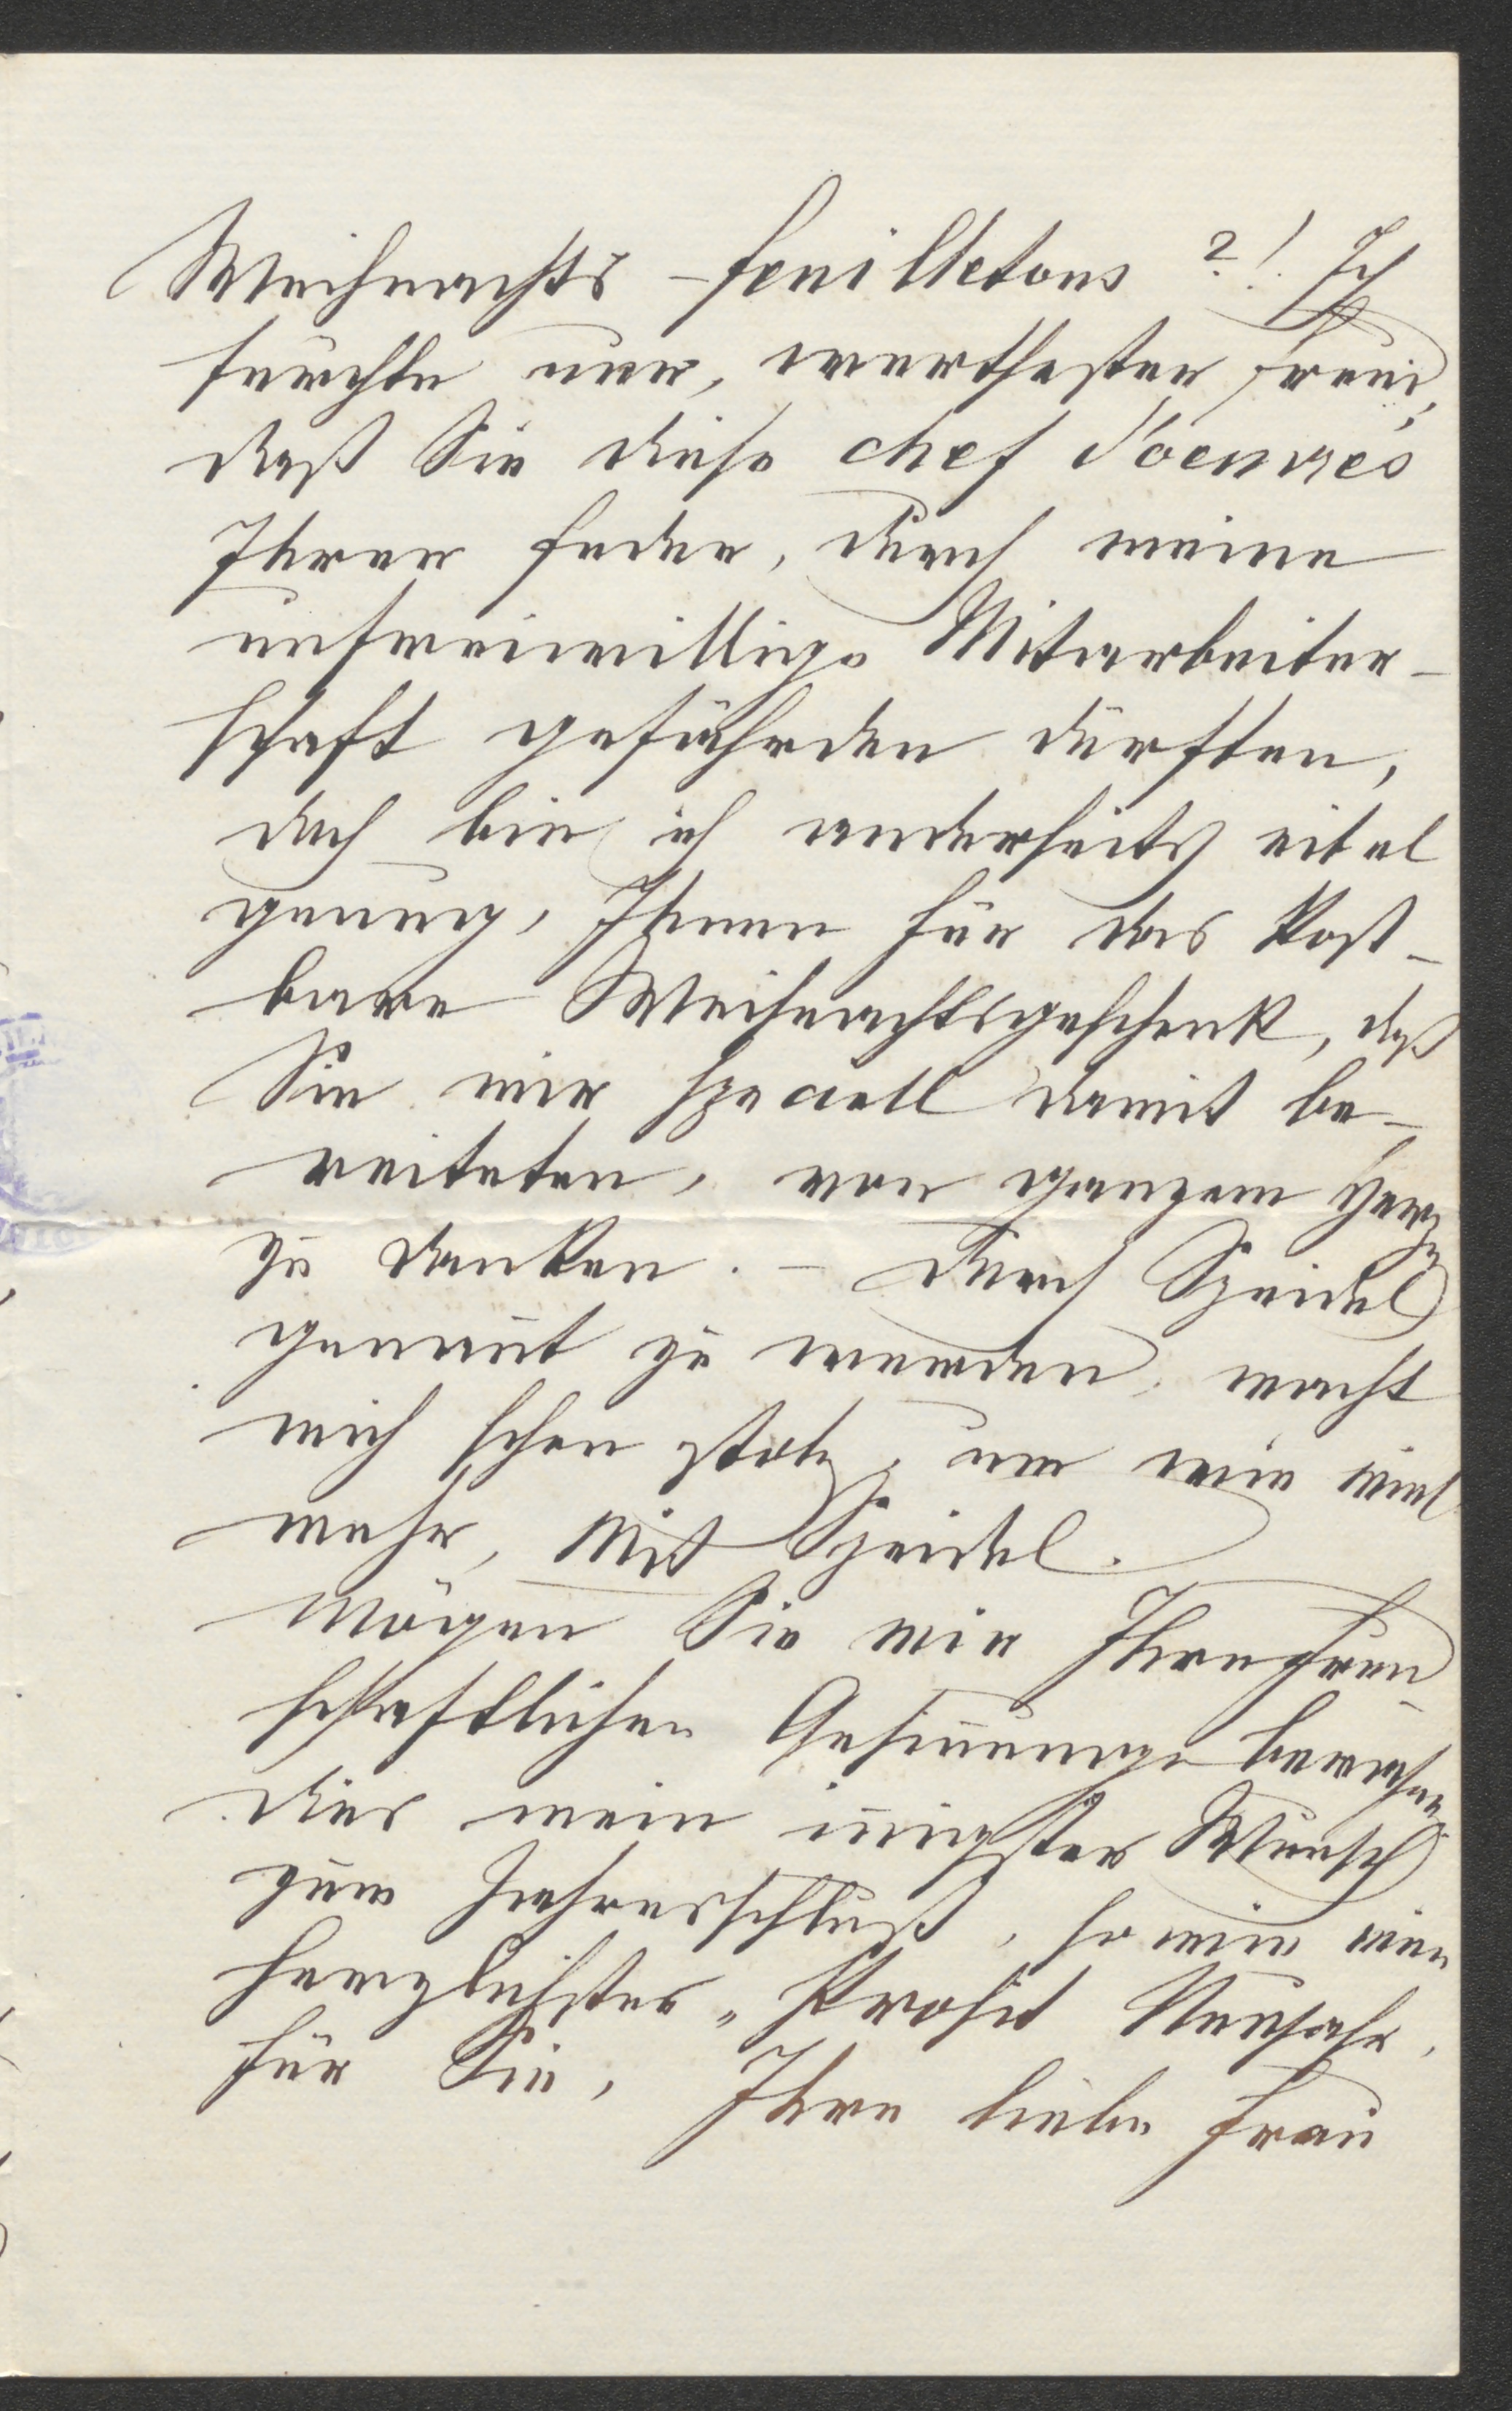 Weihnachts-feuilletons?! Ich
fürchte nur, werthester Freund,
daß Sie diese chef d'oeuvres
Ihrer Feder, durch meine
unfreiwillige Mitarbeiter-
schaft gefährden dürften,
doch bin ich anderseits eitel
genug, Ihnen für das kost-
bare Weihnachtsgeschenk, daß
Sie mir speciell damit be-
reiteten, von ganzem Herzen
zu danken. - Durch Speidel
genannt zu werden, macht
mich schon stolz, um wie viel
mehr, Mit Speidel.
Mögen Sie mir Ihre freund-
schaftlichen Gesinnungen bewahren,
dies mein innigster Wunsch
zum Jahresschluß, so wie mein
herzlichstes „Prosit Neujahr,
für Sie, Ihre liebe Frau